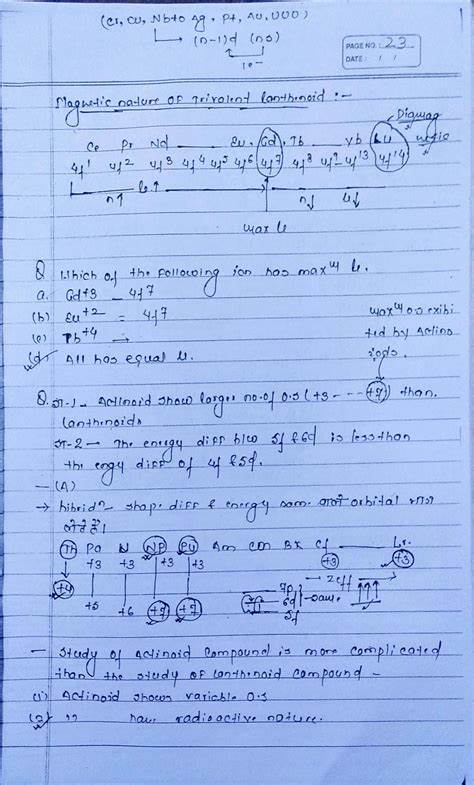 (Cr, Cu, Nb to Ag, Pt, Au, UUU)
(n-1)d (ns)
1e-
PAGE NO.: 23
DATE: / /
Magnetic nature of Trivalent Lanthinoid :-
Diamag
Ce Pr Nd Eu, Gd, Tb Yb Lu
4f1 4f2 4f3 4f4 4f5 4f6 4f7 4f8 4f9 4f13 4f14
n↑ u↑ n↓ u↓
max u
Q Which of the following ion has maxm u.
a. Gd+3 - 4f7
(b) Eu+2 = 4f7
(c) Tb+4 →
(d) All has equal u.
maxm o.s exibi
ted by Actino
ids.
Q. कथन-1 - Actinoid show larger no. of o.s (+3 --- +7) than
lanthinoids
कथन-2 - The energy diff b/w 5f & 6d is less than
the engy diff of 4f & 5d.
- (A)
→ hibridn - shap. diff & energy sam. वाले orbital भाग
लेते हैं।
Th Pa U NP Pu Am Cm BK Cf Lr.
+3 +3 +3 +3 +3 +3
+4 → Zeff
+5 +6 +7 +7
7p
6d
5f
sam.
- Study of Actinoid compound is more complicated
than the study of lanthinoid compound -
(1) Actinoid shows variable o.s
(2) " hav. radioactive nature.